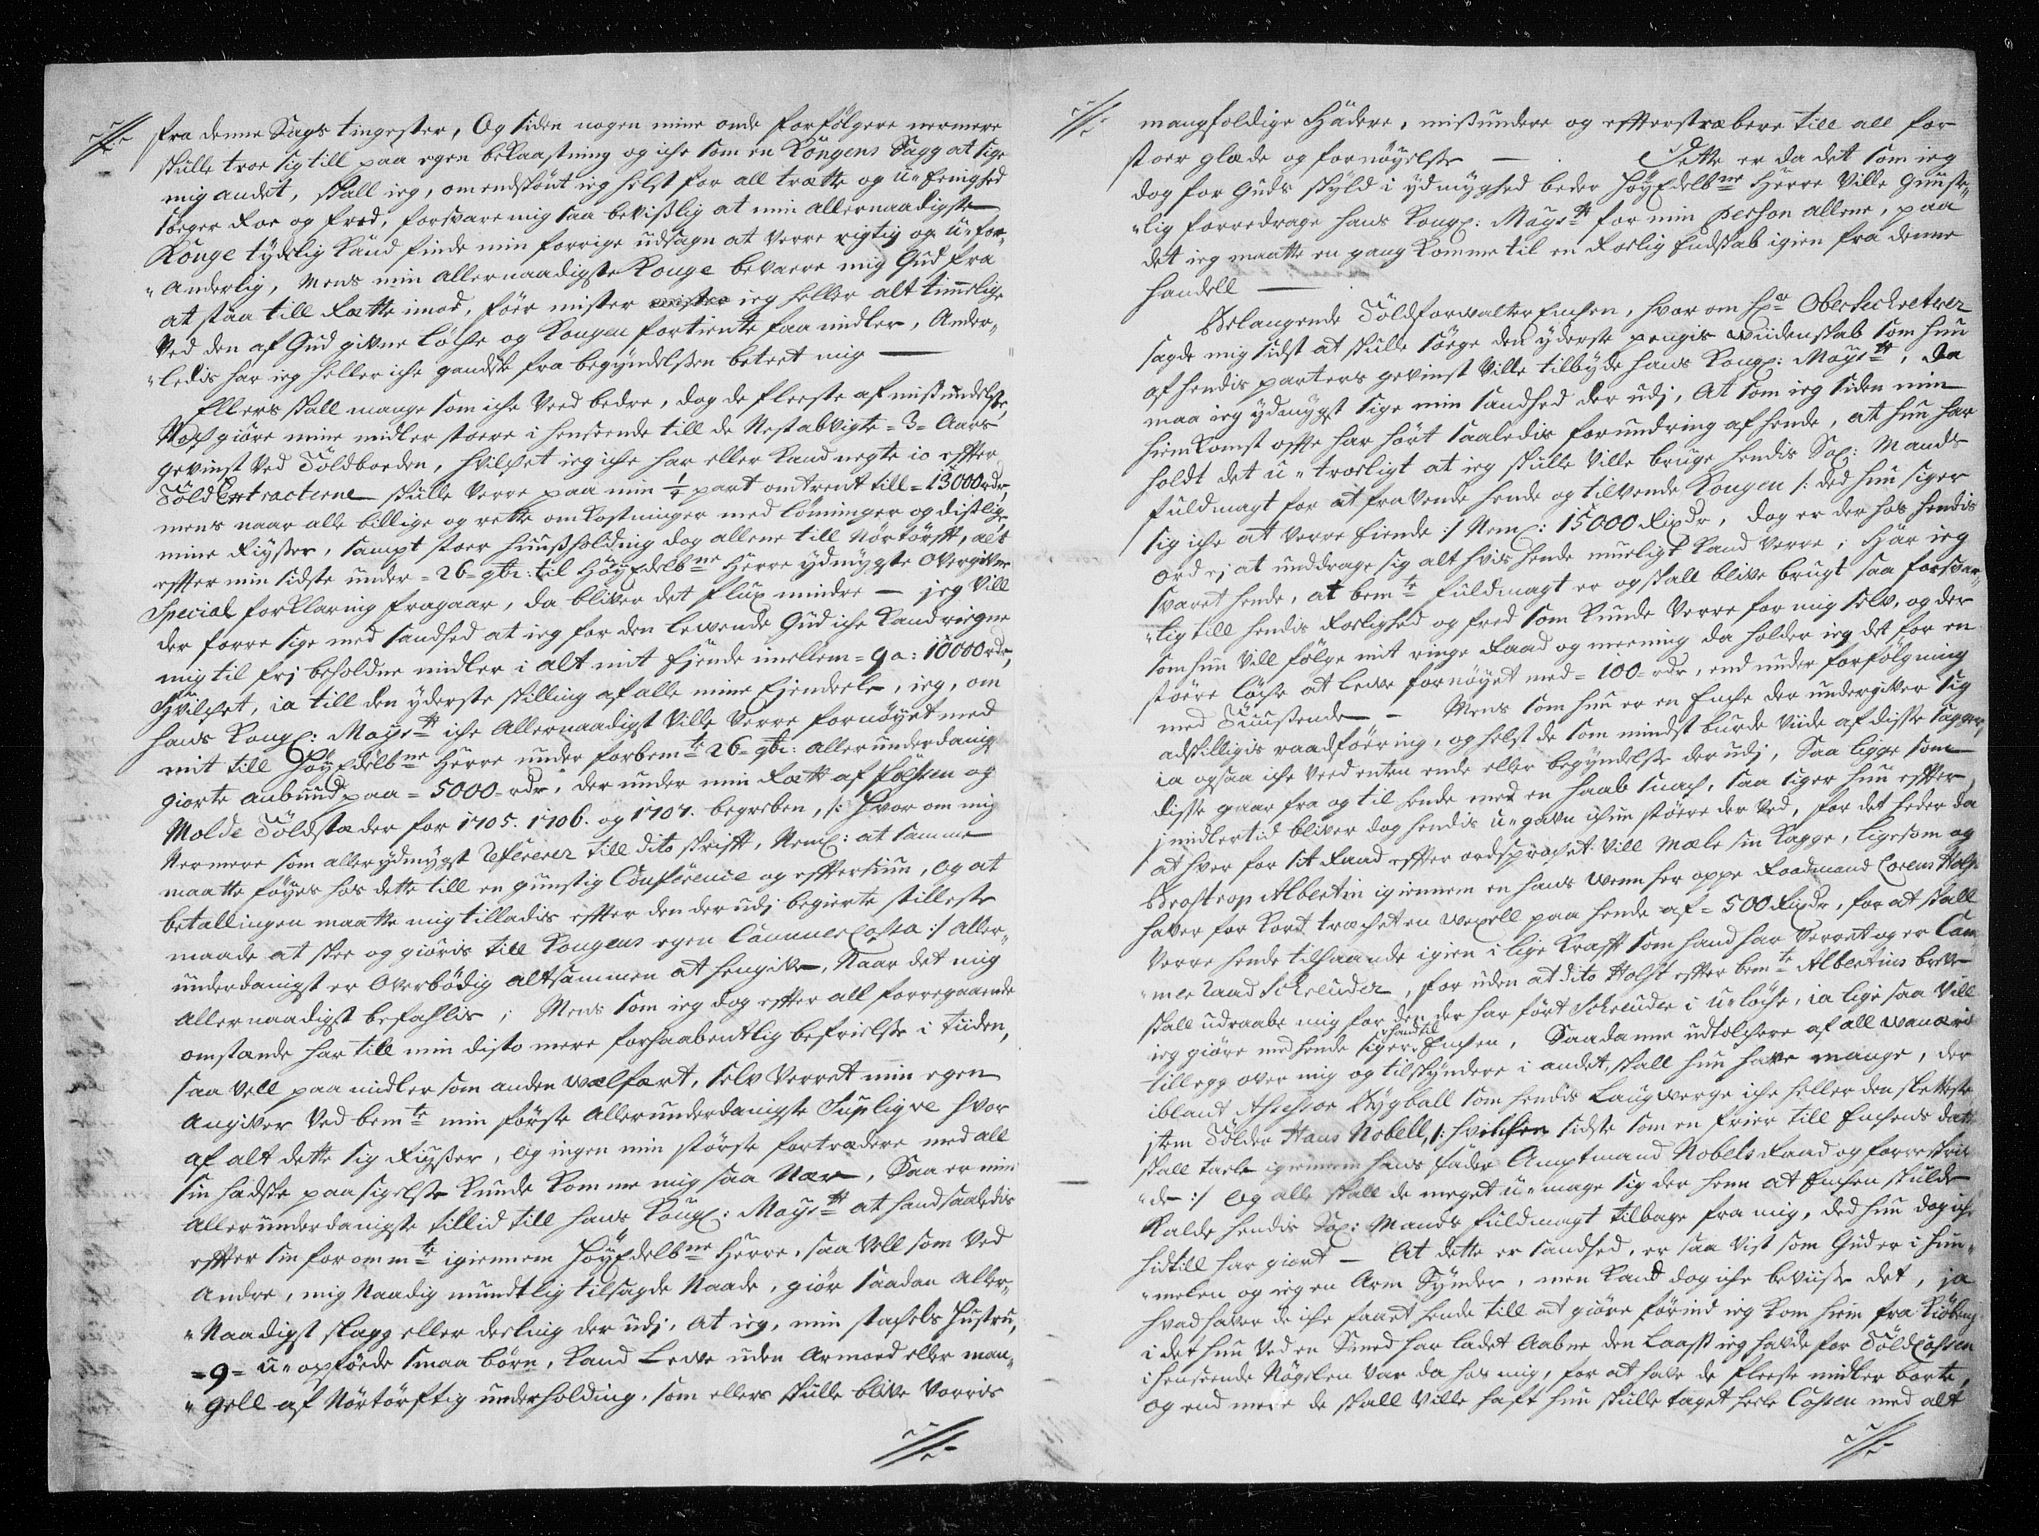 fra denne Sags tingester, Og siden nogen mine onde forfölgere nermere
skulle troe sig till paa egen bekaastning og iche som en Kongens Sagg at sige
mig andet, skall ieg, omendskönt ieg helst for all trætte og u-Eenighed
söger Roe og fred, forsvare mig saa bevißlig at min allernaadigste
Konge tydelig kand finde min forrige udsagn at verre rigtig og u-for-
"anderlig, Mens min allernaadigste Konge bevaere mig Gud fra
at staa till Rætte imod, föer mister ieg heller alt timelige
Ved den af Gud givne löche og Kongen fortiente faa midler, Ander-
"ledis har ieg heller iche gandske fra begyndelßen beteet mig —
Ellers skall mange som iche veed bedre, dog de fleeste af mißundelße,
giöre mine midler stoere i henseende till de Nest abvigte = 3 = Aars
gevinst ved Töldboeden, hvilchet ieg iche har eller kand negte io effter
TöldExtracterne skulle verre paa min 1/4 part omtrent till = 13000 rdr,
mens naar alle billige og rette omkostninger med lönninger og dißlige
mine Reyßer, sampt stoer Huußholding dog allene till Nörtörfft, alt
effter min sidste under = 26 = 9br: til HöyEdelbne Herre ydmygste overgivne
Special forklaring fragaar, da bliver det flux mindre — jeg vill
der forre sige med sandhed at ieg for den levende Gud iche kand reigne
mig til frj beholdne midler i alt mit Ejende imellem = 9 a: 10000 rdr,
Hvilchet, ia till den yderste skilling af alle mine Ejendeele, ieg, om
hans Kongl: Mayst iche allernaadigst ville verre fornöyet med
mit till HöyEdelbne Herre under forbemte 26 = 9br: allerunderdanigst
giorte anbuud paa = 5000 = rdr, der under min Rætt af
Molde Töldstæder for 1705. 1706. og 1707. begreben, /: Hvor om mig
Nermere som aller ydmygst refererer till dito skrifft, Neml: at samme
maatte föyes hos dette till en gunstig Conference og efftersiun, og at
betallingen maatte mig tilladis effter den der udj begierte stilleste
maade at skee og giöris till Kongens egen Cammer Cassa :/ aller-
underdanigst er overbödig altsammen at hengive, Naar det mig
allernaadigst befahlis; Mens som ieg dog effter all forregaaende
omstænde har till min disto mere forhaabentlig befrielße i tiiden,
saa vell paa midler som anden welfært, selv verret min egen
angiver ved bemte min förste allerunderdanigste Supliqve hvor
af alt dette sig Reyßer, og ingen min störste fortrædere med all
sin hadske paasigelße kunde komme mig saa Nær, Saa er min
allerunderdanigste tillid till hans Kongl: Mayst at hand saaledis
effter sin forommte igiennem HöyEdelbne Herre, saa vell som ved
andre, mig Naadig mundtlig tilsagde Naade, giör saadan aller-
"Naadigst slagg eller deeling der udj, at ieg, min stachels Hustru,
= 9 = u-opföede smaa börn, kand Leve uden armoed eller man-
"gell af Nörtörftig underholding, som ellers skulle blive vorris
mangfoldige Hadere, mißundere og effterstræbere till all for
stoer glæde og fornöyelße — . Dette er da det som ieg
dog for Guds skyld i ydmyghed beder HöyEdelbne Herre ville gunst-
"lig forredrage hans Kongl: Mayst for min Person allene, paa
det ieg maatte en gang komme til en Roelig Endskab igien fra denne
handell —
Belangende Töldforvalter Enchen, hvor om Hr Obersecreterer
sagde mig sidst at skulle söge den yderste pengis videnskab som hun
af hendis parters gevinst ville tilbyde hans Kongl: Mayst, da
maa ieg ydmygst sige min sandhed der udj, At som ieg siden min
hiemkomst offte har hört saaledis forundring af hende, at hun har
holdt det u-troeligt at ieg skulle ville bruge hendis Sal: Mands
fuldmagt for at fravende hende og tilvende Kongen /: ded hun siger
sig iche at verre Eiende :/ Neml: 15000 Rixdr, dog er der hos hendis
ord ej at unddrage sig alt hvis hende mueligt kand verre; Har ieg
svaret hende, at bemte fuldmagt er og skall blive brugt saa forsvar-
"lig till hendis Roelighed og fred som kunde verre for mig selv, og der
som hun vill fölge mit ringe Raad og meening da holder ieg det for en
störe löche at leve fornöyet med = 100 = rdr, end under forfölgning
med Tuußende — Mens som hun er en Enche der undergiver sig
adskilligis raadföering, og helst de som mindst burde viide af disse sagger,
ia ogsaa iche veed enten ende eller begyndelße der udj, Saa ligge som
disse gaar fra og til hende med en haab snach, saa siger hun effter,
imidlertid bliver dog hendis u-gavn ichun större der ved, for det heder da
at hver for sit Raad effter ordsproget vill Mæle sin Kagge, ligesom og
Brostrop Albertin igiennem en hans wenn her oppe Raadmand Lorens Holst
haver for kort trachet en wexell paa hende af = 500 Rixdr, for at skall
verre hende tilhaande igien i lige krafft som hand har verret og er Cam-
"mer Raad Schreuder, for uden at dito Holst effter bemte Albertins breve
skall udraabe mig for den der har fört Schreuder i u-löche, ia lige saa vill
ieg giöre med hende siger hand til Enchen, Saadanne udtolchere af all wanære
tillegg over mig og tilskyndere i andet, skall hun have mange, der
iblant Assessor Nygball som hendis Laugwerge iche heller den sletteste
jtem Tölder Hans Nobell, /: hvilchen sidste som en frier till Enchens datter
skall taele igiennem hans fader Amptmand Nobels Raad og forreskri-
"de :/ Og alle skall de meget u-mage sig der henn at Enchen skulde
kalde hendis Sal: Mands fuldmagt tilbage fra mig, ded hun dog iche
hidtill har giort — At dette er sandhed, er saa vist som Gud er i Him-
"melen og ieg en Arm Synder, men kand dog iche beviise det, ja
hvad haver de iche faaet hende till at giöre förind ieg kom hiem fra Kiöbenh
i det hun ved en Smed har ladet aabne den Laaß ieg havde for Töldcaßen
i henseende Nöglen var da hos mig, for at have de fleeste midler borte,
og end mere de skall ville haft hun skulle taget hele Caßen med alt